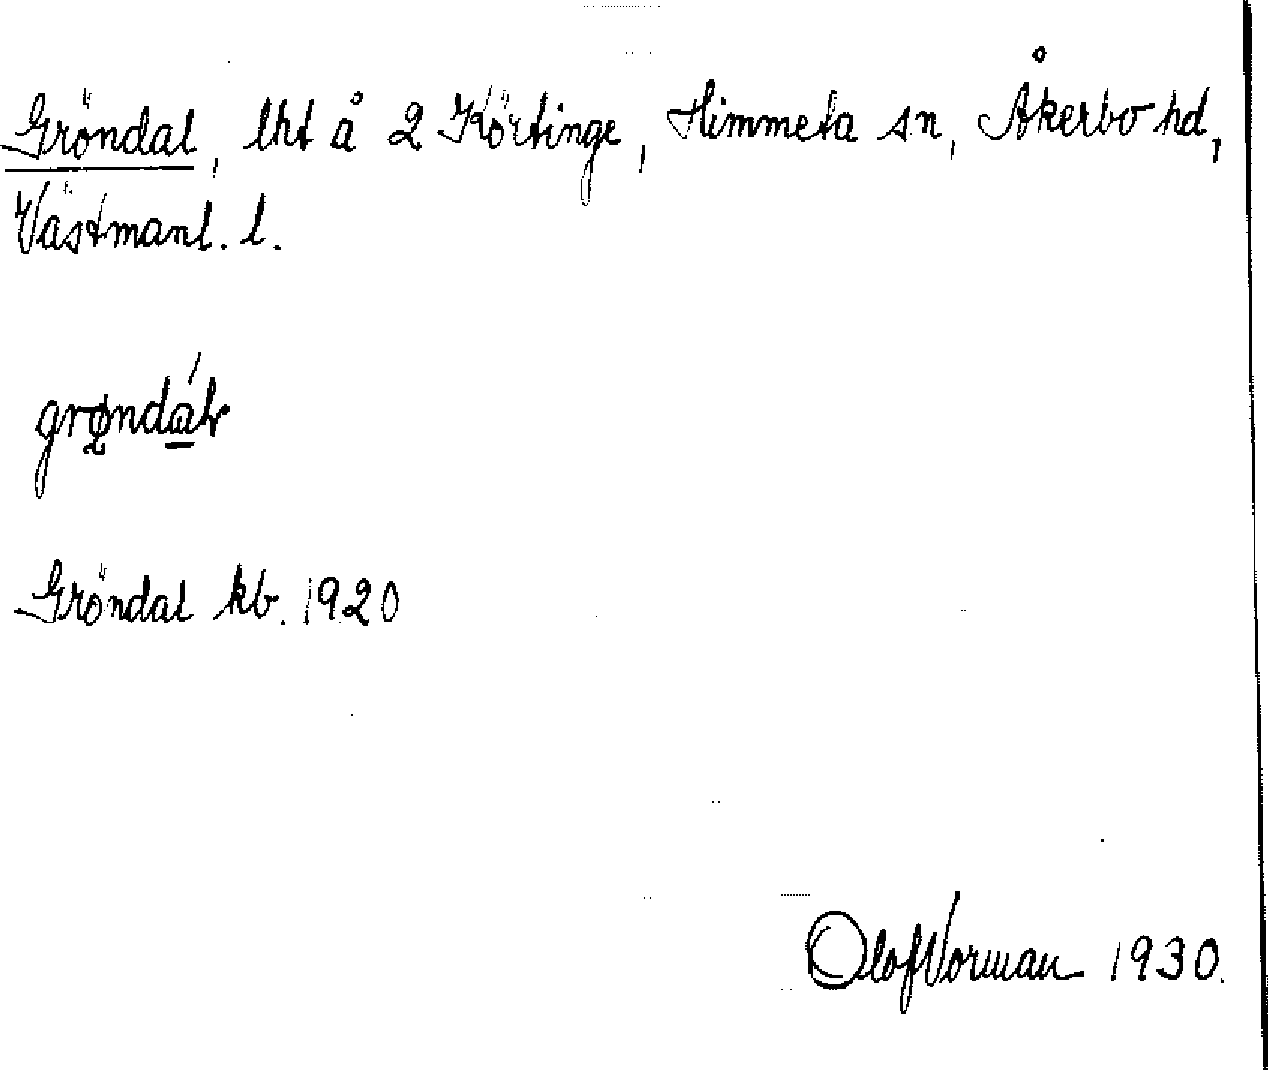 Gröndal, lht å 2 Körtinge, Himmeta sn, Åkerbo hd,
Västmanl. l.
grøndál
Gröndal kb. 1920
Olof Norman 1930.